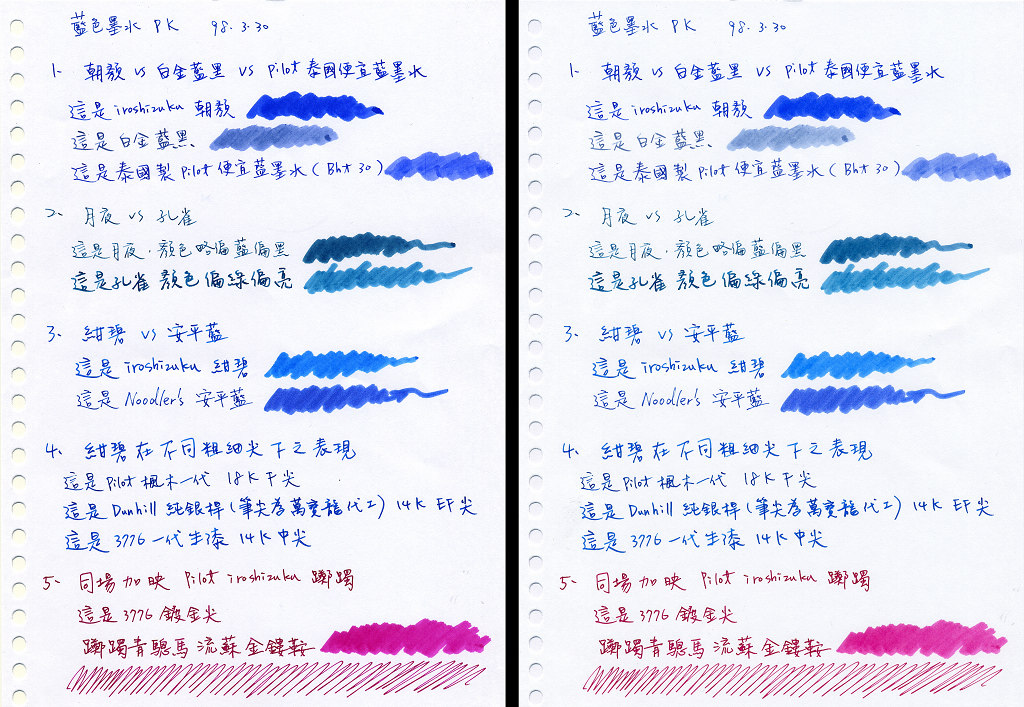 藍色墨水 PK 98.3.30
1、朝貌 vs 白金藍黑 vs Pilot 泰國便宜藍墨水
這是 iroshizuku 朝貌
這是白金藍黑、
這是泰國製 Pilot 便宜藍墨水 (Bht 30)
2、月夜 vs 孔雀
這是月夜．顏色略偏藍偏黑
這是孔雀 顏色偏綠偏亮
3、紺碧 vs 安平藍
這是 iroshizuku 紺碧
這是 Noodler's 安平藍
4、紺碧在不同粗細尖下之表現
這是 Pilot 楓木一代 18K F尖
這是 Dunhill 純銀桿 (筆尖為萬寶龍代工) 14K EF尖
這是 3776 一代生漆 14K 中尖
5、同場加映 Pilot iroshizuku 躑躅
這是 3776 鍍金尖
躑躅青驄馬 流蘇金鏤鞍
藍色墨水 PK 98.3.30
1、朝貌 vs 白金藍黑 vs Pilot 泰國便宜藍墨水
這是 iroshizuku 朝貌
這是白金藍黑、
這是泰國製 Pilot 便宜藍墨水 (Bht 30)
2、月夜 vs 孔雀
這是月夜．顏色略偏藍偏黑
這是孔雀 顏色偏綠偏亮
3、紺碧 vs 安平藍
這是 iroshizuku 紺碧
這是 Noodler's 安平藍
4、紺碧在不同粗細尖下之表現
這是 Pilot 楓木一代 18K F尖
這是 Dunhill 純銀桿 (筆尖為萬寶龍代工) 14K EF尖
這是 3776 一代生漆 14K 中尖
5、同場加映 Pilot iroshizuku 躑躅
這是 3776 鍍金尖
躑躅青驄馬 流蘇金鏤鞍